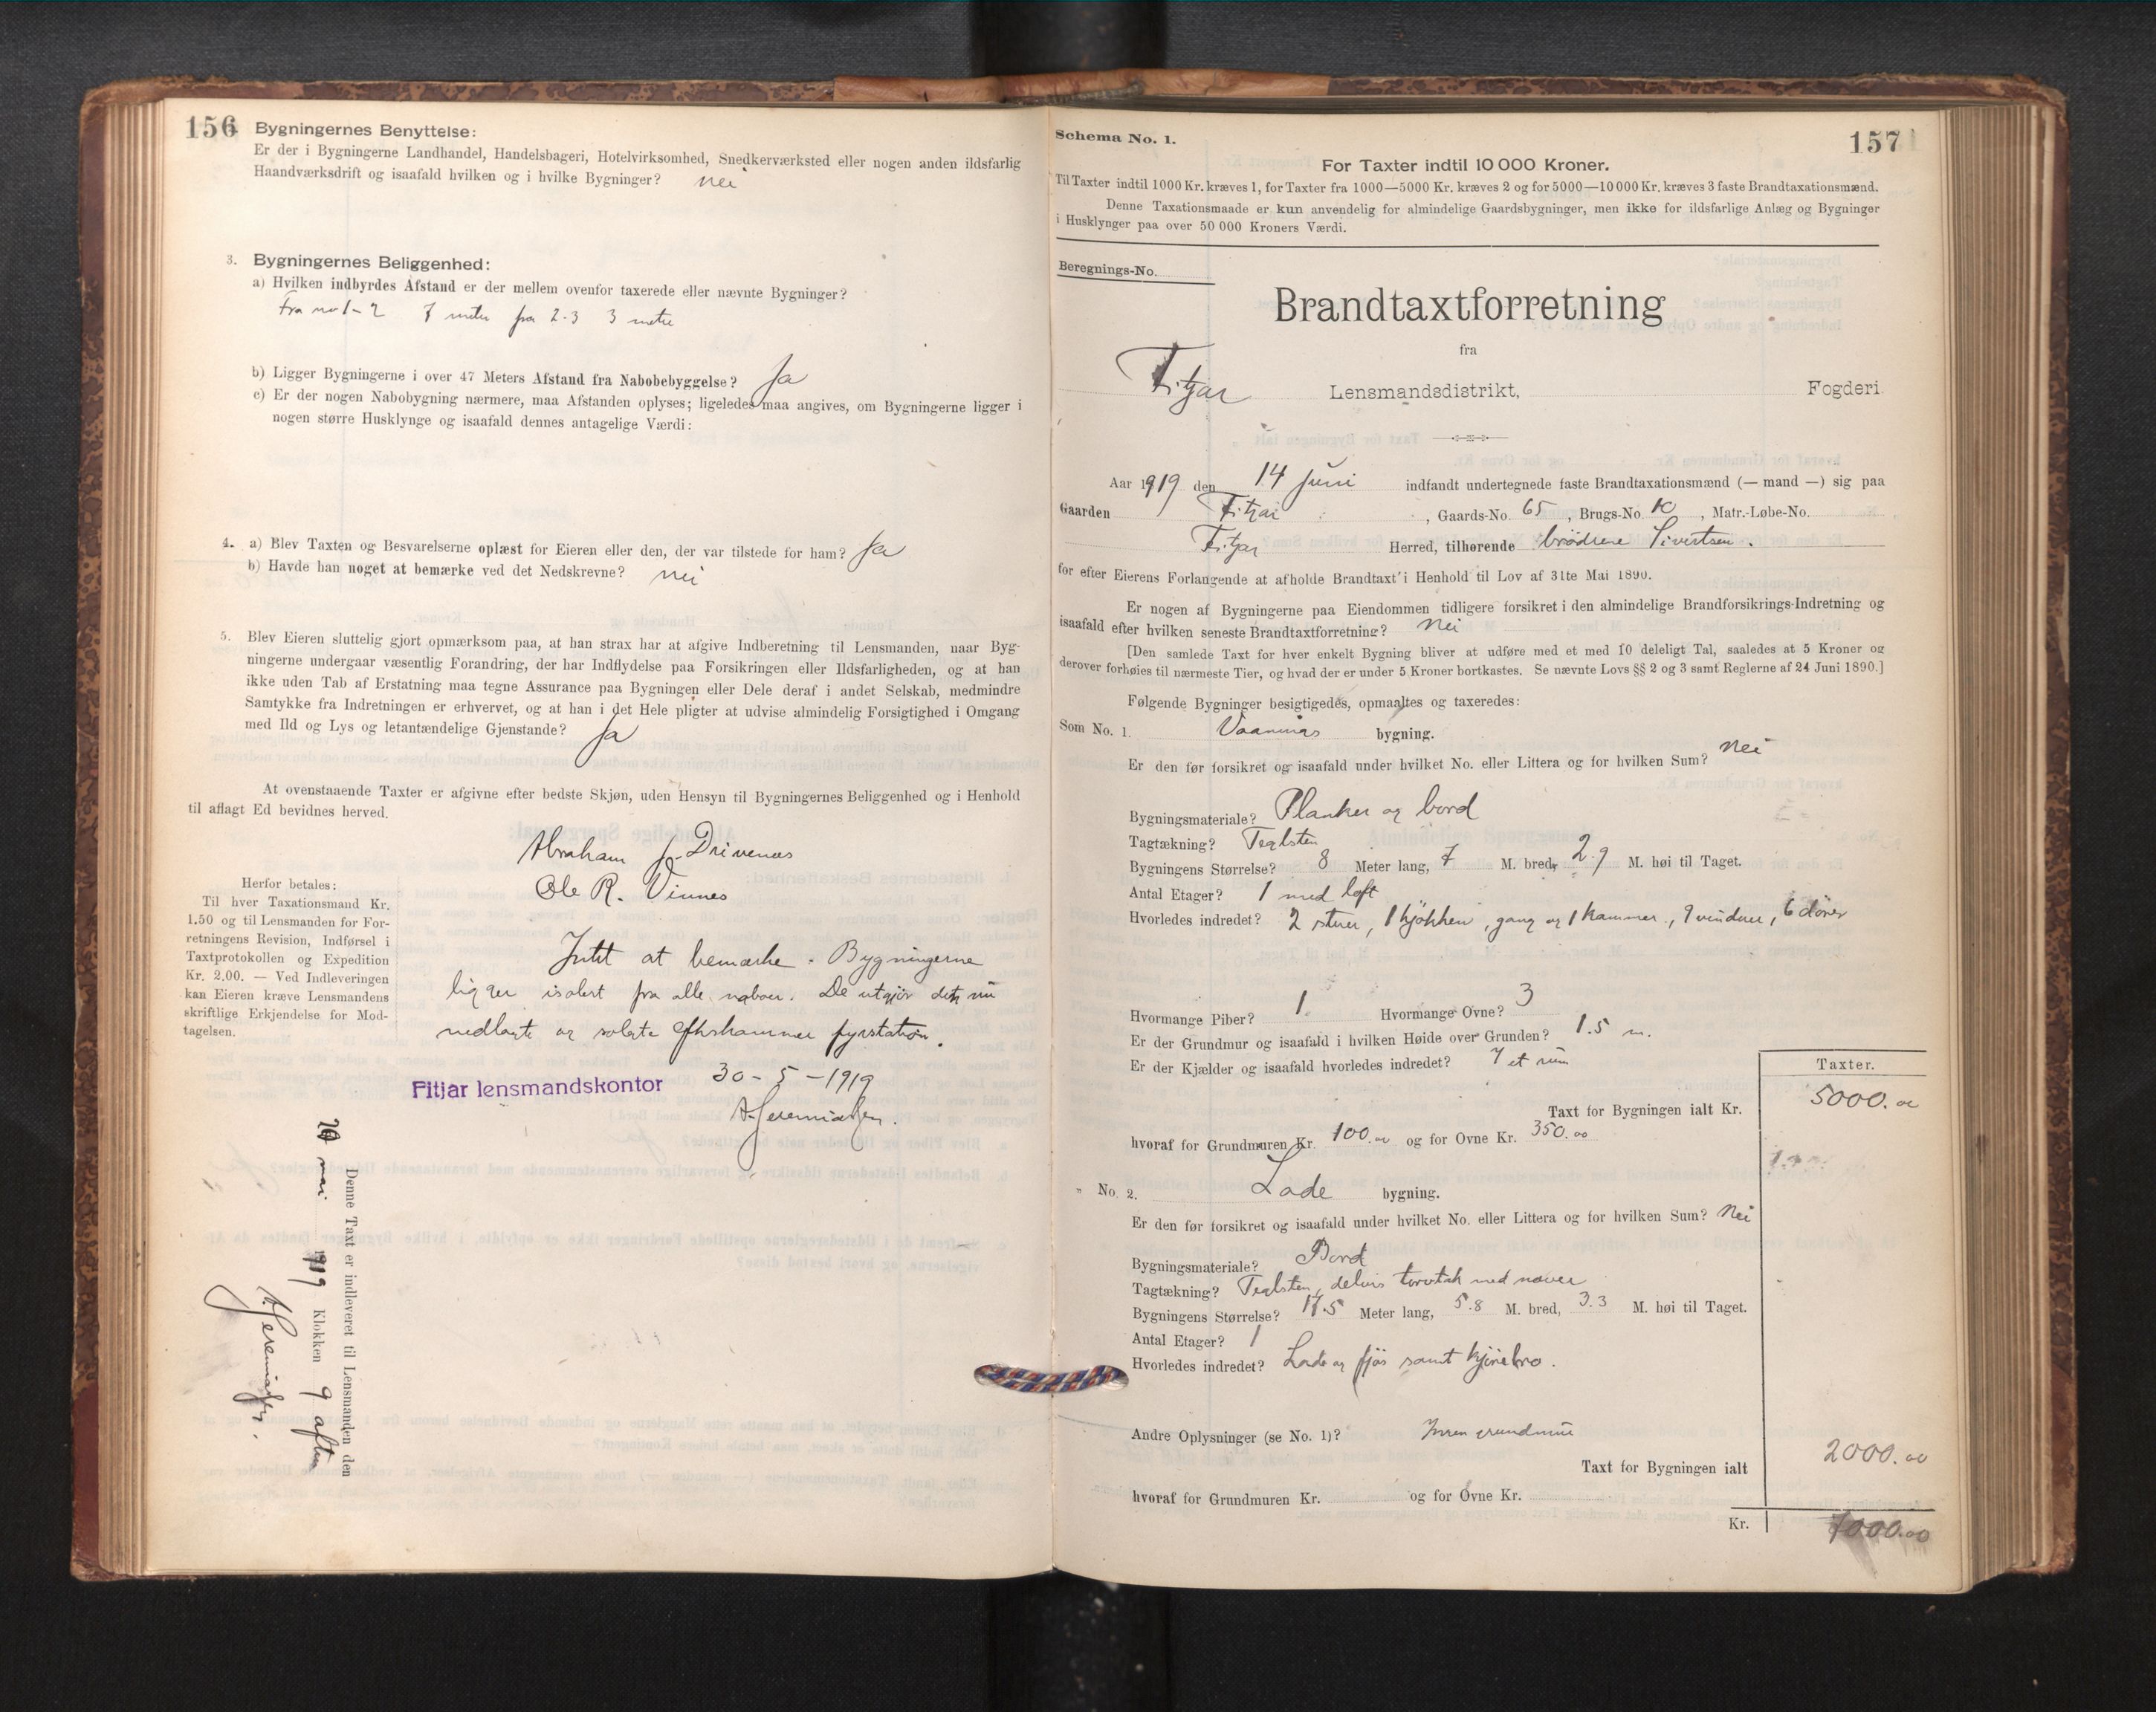 156
Bygningernes Benyttelse:
Er der i Bygningerne Landhandel, Handelsbageri, Hotelvirksomhed, Snedkerværksted eller nogen anden ildsfarlig
Haandværksdrift og isaafald hvilken og i hvilke Bygninger? nei
3. Bygningernes Beliggenhed:
a) Hvilken indbyrdes Afstand er der mellem ovenfor taxerede eller nævnte Bygninger?
Fra no 1-2 7 meter fra 2-3 3 metre
b) Ligger Bygningerne i over 47 Meters Afstand fra Nabobebyggelse? Ja
c) Er der nogen Nabobygning nærmere, maa Afstanden oplyses; ligeledes maa angives, om Bygningerne ligger i
nogen større Husklynge og isaafald dennes antagelige Værdi:
4. a) Blev Taxten og Besvarelserne oplæst for Eieren eller den, der var tilstede for ham? Ja
b) Havde han noget at bemærke ved det Nedskrevne? nei
5. Blev Eieren sluttelig gjort opmærksom paa, at han strax har at afgive Indberetning til Lensmanden, naar Byg-
ningerne undergaar væsentlig Forandring, der har Indflydelse paa Forsikringen eller Ildsfarligheden, og at han
ikke uden Tab af Erstatning maa tegne Assurance paa Bygningen eller Dele deraf i andet Selskab, medmindre
Samtykke fra Indretningen er erhvervet, og at han i det Hele pligter at udvise almindelig Forsigtighed i Omgang
med Ild og Lys og letantændelige Gjenstande? Ja
At ovenstaaende Taxter er afgivne efter bedste Skjøn, uden Hensyn til Bygningernes Beliggenhed og i Henhold
til aflagt Ed bevidnes herved.
Abraham J. Drivenes
Ole R. Vinnes
Herfor betales:
Til hver Taxationsmand Kr.
1.50 og til Lensmanden for For-
retningens Revision, Indførsel i
Taxtprotokollen og Expedition
Kr. 2.00. — Ved Indleveringen
kan Eieren kræve Lensmandens
skriftlige Erkjendelse for Mod-
tagelsen.
Intet at bemærke. Bygningerne
ligger isolert fra alle naboer. De utgjør den nu
nedlagte og solgte fyrstation.
Fitjar lensmandskontor 30-5-1919
A. Jeremiassen.
Denne Taxt er indleveret til Lensmanden den
mai 1919 Klokken 9 aften
A. Jeremiassen.
Schema No. 1.
157
For Taxter indtil 10 000 Kroner.
Til Taxter indtil 1000 Kr. kræves 1, for Taxter fra 1000—5000 Kr. kræves 2 og for 5000—10 000 Kr. kræves 3 faste Brandtaxationsmænd.
Denne Taxationsmaade er kun anvendelig for almindelige Gaardsbygninger, men ikke for ildsfarlige Anlæg og Bygninger
i Husklynger paa over 50 000 Kroners Værdi.
Beregnings-No.
Brandtaxtforretning
fra
Fitjar Lensmandsdistrikt, Fogderi
Aar 1919 den 14 Juni indfandt undertegnede faste Brandtaxationsmænd (— mand —) sig paa
Gaarden Fitjar, Gaards-No. 65, Brugs-No. K, Matr.-Løbe-No.
Fitjar Herred, tilhørende brødrene Sivertsen.
for efter Eierens Forlangende at afholde Brandtaxt i Henhold til Lov af 31te Mai 1890.
Er nogen af Bygningerne paa Eiendommen tidligere forsikret i den almindelige Brandforsikrings-Indretning og
isaafald efter hvilken seneste Brandtaxtforretning? Nei
[Den samlede Taxt for hver enkelt Bygning bliver at udføre med et med 10 deleligt Tal, saaledes at 5 Kroner og
derover forhøies til nærmeste Tier, og hvad der er under 5 Kroner bortkastes. Se nævnte Lovs §§ 2 og 3 samt Reglerne af 24 Juni 1890.]
Følgende Bygninger besigtigedes, opmaaltes og taxeredes:
Som No. 1. Vaanings bygning.
Er den før forsikret og isaafald under hvilket No. eller Littera og for hvilken Sum? Nei
Bygningsmateriale? Planker og bord
Tagtækning? Teglsten
Bygningens Størrelse? 8 Meter lang, 7 M. bred, 2.9 M. høi til Taget.
Antal Etager? 1 med loft
Hvorledes indredet? 2 stuer, 1 kjøkken, gang og 1 kammer, 9 vinduer, 6 dører
Hvormange Piber? 1. Hvormange Ovne? 3
Er der Grundmur og isaafald i hvilken Høide over Grunden? 1.5 m.
Er der Kjælder og isaafald hvorledes indredet? I et rum
Taxter.
Taxt for Bygningen ialt Kr. 5000.00
hvoraf for Grundmuren Kr. 100.00 og for Ovne Kr. 350.00
" No. 2. Lade bygning.
Er den før forsikret og isaafald under hvilket No. eller Littera og for hvilken Sum? Nei
Bygningsmateriale? Bord
Tagtækning? Teglsten, delvis torvtak med næver
Bygningens Størrelse? 17.5 Meter lang, 5.8 M. bred, 3.3 M. høi til Taget.
Antal Etager? 1
Hvorledes indredet? Lade og fjøs samt kjørebro.
Andre Oplysninger (se No. 1)? Ingen grundmur
Taxt for Bygningen ialt 2000.00
hvoraf for Grundmuren Kr. og for Ovne Kr.
Kr. 7000.00